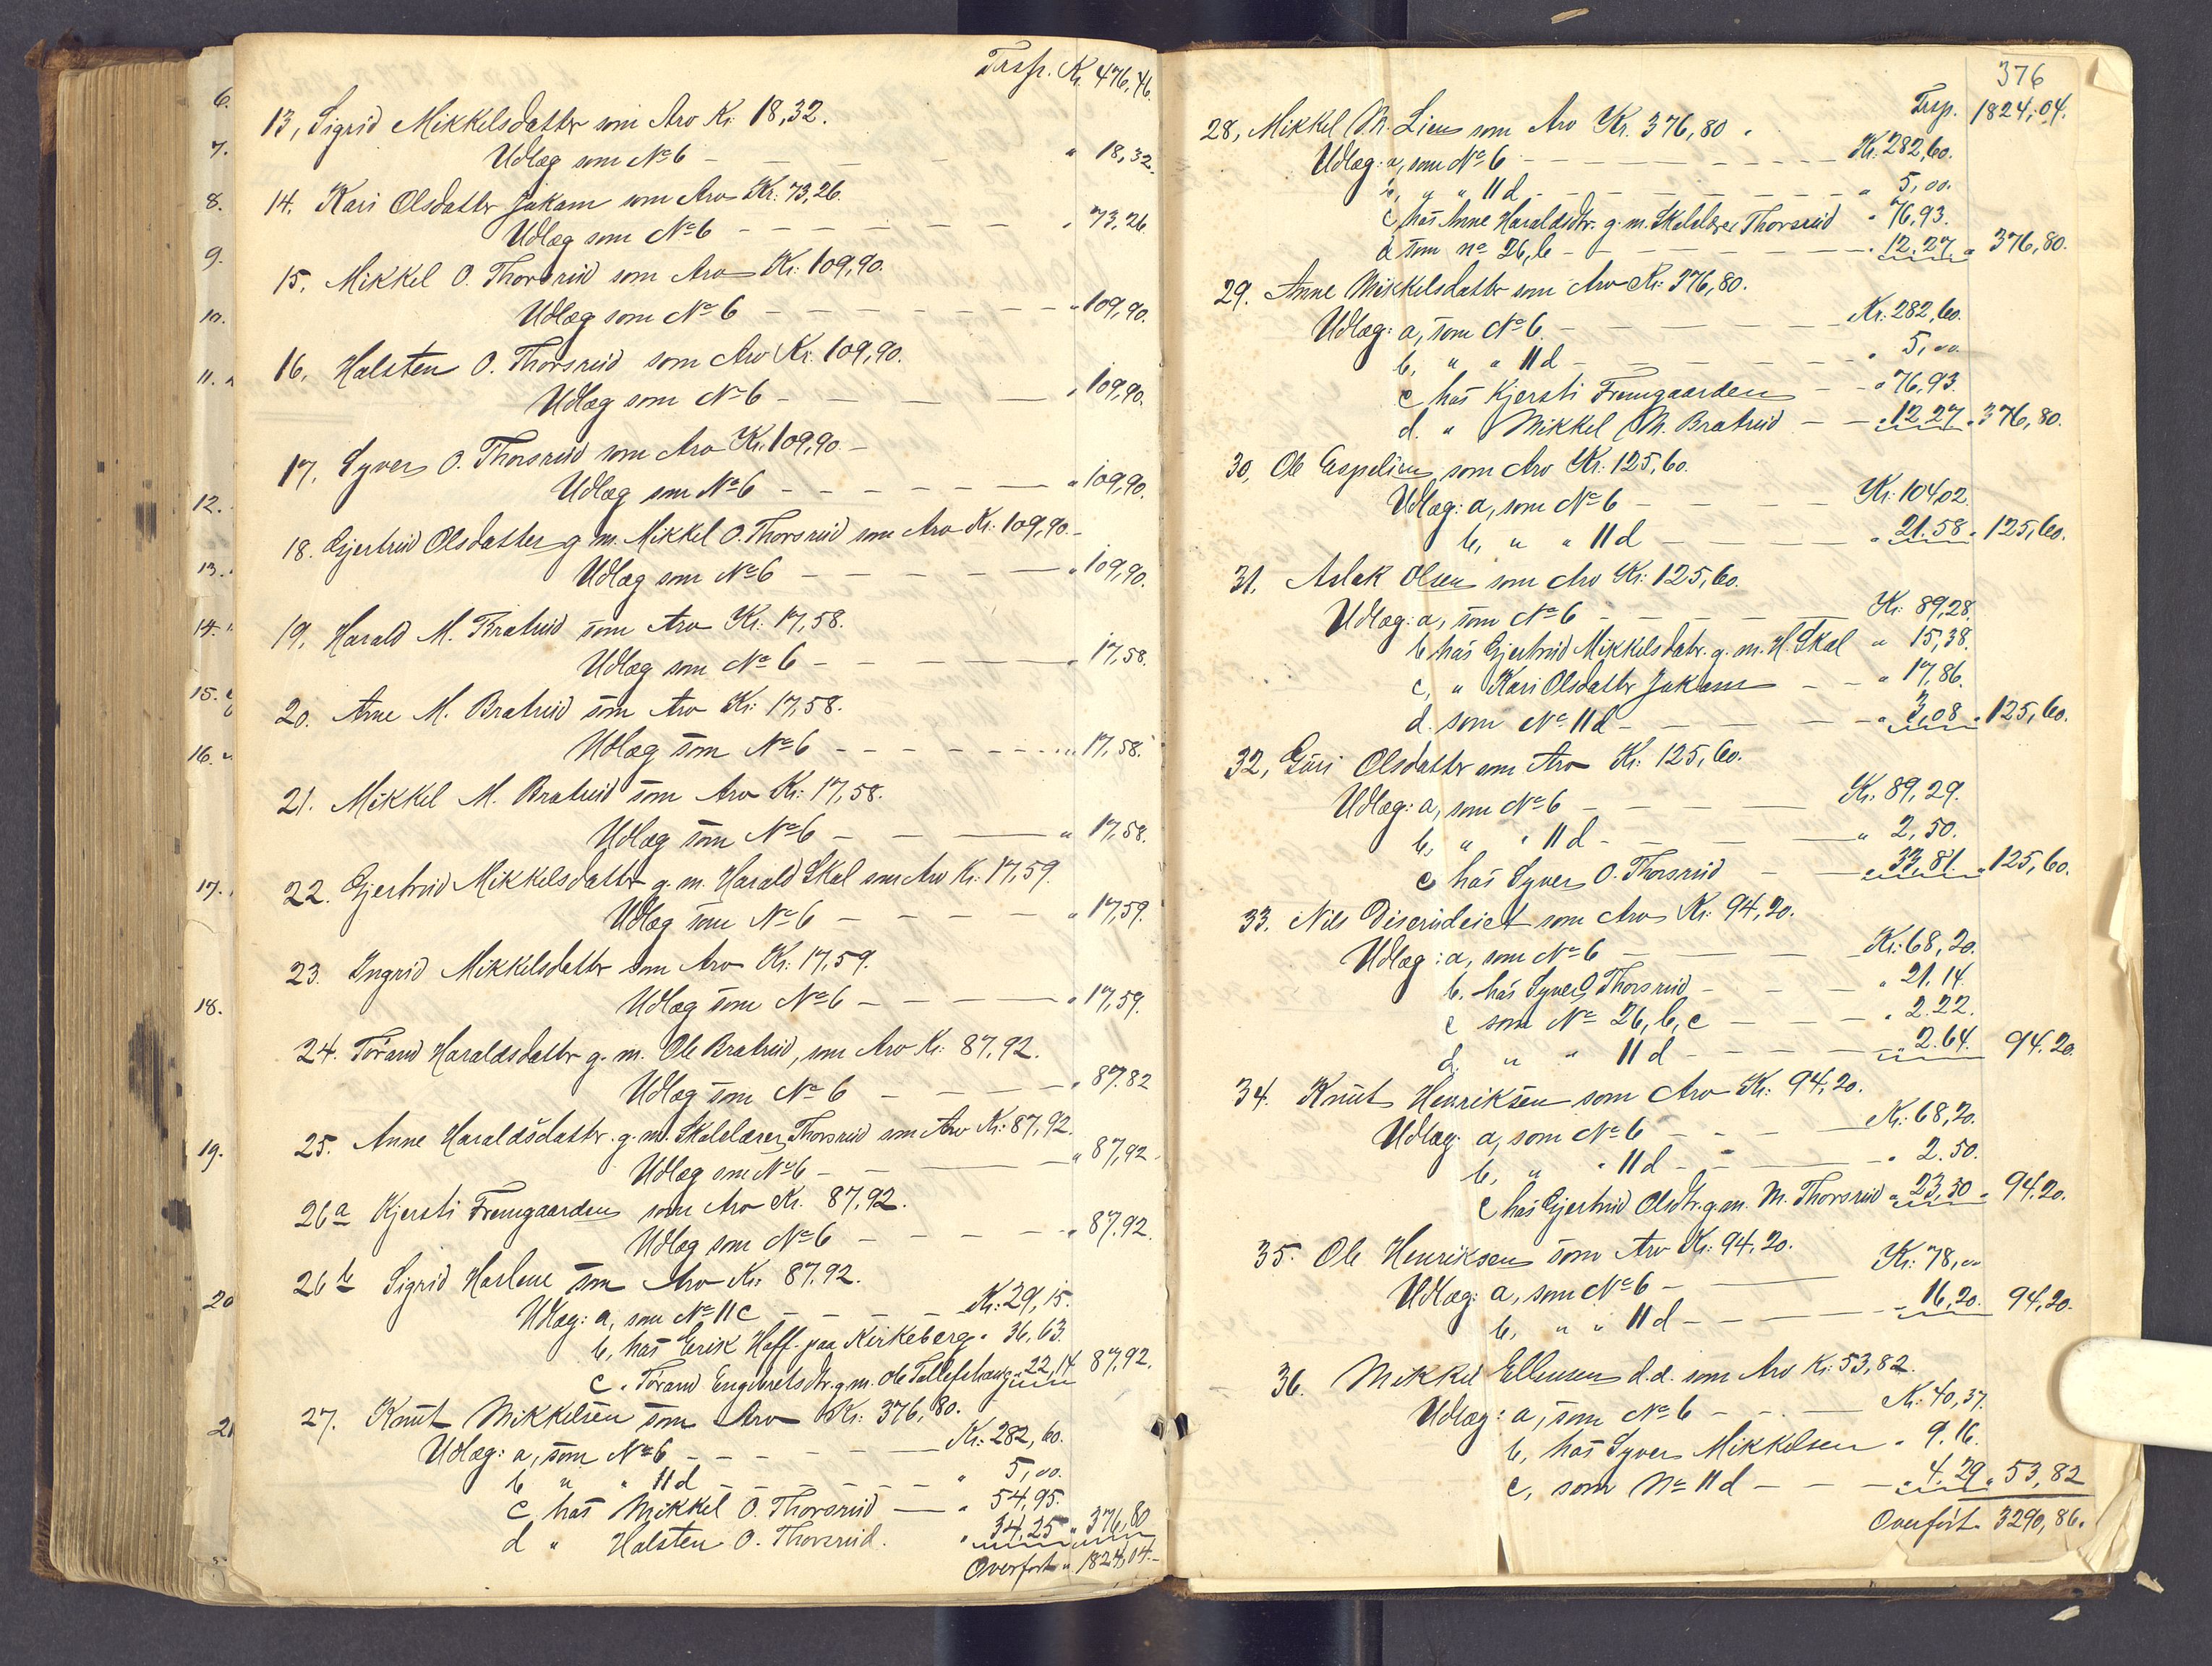 Trsp. Kr. 476,46.
13, Sigrid Mikkelsdatter som Arv Kr. 18,32.
Udlæg som No 6 - - - - " 18,32.
14. Kari Olsdatter Jokam som Arv Kr: 73,26.
Udlæg som No 6 - - - - " 73,26.
15. Mikkel O. Thorsrud som Arv Kr: 109,90.
Udlæg som No 6 - - - - " 109,90.
16, Halsten O. Thorsrud som Arv Kr: 109,90.
Udlæg som No 6 - - - - " 109,90.
17, Syver O. Thorsrud som Arv Kr. 109,90.-
Udlæg som No 6 - - - - " 109,90.
18. Gjertrud Olsdatter g. m. Mikkel O. Thorsrud som Arv Kr: 109,90.-
Udlæg som No 6 - - - - " 109,90.
19, Harald M. Bratrud som Arv Kr: 17,58.
Udlæg som No 6 - - - - " 17,58.
20. Arne M. Bratrud som Arv Kr: 17,58.
Udlæg som No 6 - - - - " 17,58.
21. Mikkel M. Bratrud som Arv Kr: 17,58.
Udlæg som No 6 - - - - " 17,58.
22. Gjertrud Mikkelsdatter g. m. Harald Skal som Arv Kr. 17,59.
Udlæg som No 6 - - - - " 17,59.
23. Ingrid Mikkelsdatter som Arv Kr: 17,59.
Udlæg som No 6 - - - - " 17,59.
24. Torand Haraldsdatter g. m. Ole Bratrud, som Arv Kr: 87,92.
Udlæg som No 6 - - - - " 87.82
25. Anne Haraldsdatter. g. m. Skolelærer Thorsrud som Arv Kr: 87,92.
Udlæg som No 6 - - - - " 87,92.
26a Kjersti Fremgaarden som Arv Kr. 87,92.
Udlæg som No 6 - - - - " 87.92.
26b Sigrid Harlene som Arv Kr: 87.92.
Udlæg: a, som No 11c - - - - Kr: 29,15.
b, hos Erik Hoff paa Kirkeberg " 36,63.
c " Torand Engebretsdtr. g. m. Ole Tollefshaug " 22,14 87,92.
27. Knut Mikkelsen som Arv Kr: 376,80.
Udlæg: a, som No 6 - - - - Kr: 282,60.
b " " 11d - - - - " 5,00.
c hos Mikkel O. Thorsrud - " 54,95.
d " Halsten O. Thorsrud. " 34,25 " 376,80
Overført " 1824,04.-
376
Trsp. 1824,04.
28, Mikkel M. Lien som Arv Kr. 376,80.
Udlæg: a, som No 6 - - - - Kr. 282,60.
b, " " 11d - - - - " 5,00.
c hos Anne Haraldsdtr. g. m. Skolelærer Thorsrud " 76,93.
d som no 26,b - - - - " 12,27 " 376,80.
29. Anne Mikkelsdatter som Arv Kr: 376,80.
Udlæg: a, som No 6. - - - - Kr: 282,60.
b, " " 11d - - - - " 5,00
c hos Kjersti Fremgaarden - - " 76,93.
d. " Mikkel M. Bratrud - - " 12.27 " 376,80.
30, Ole Espelien som Arv Kr: 125,60.
Udlæg: a, som No 6 - - - - Kr: 104,02.
b, " " 11d - - - - " 21.58 " 125,60.
31, Aslak Olsen som Arv Kr: 125,60.
Udlæg: a, som No 6 - - - - Kr: 89,28.
b hos Gjertrud Mikkelsdatr. g. m. H. Skal " 15,38.
c, " Kari Olsdatter Jokam - - " 17,86.
d. som No 11d - - - - " 3,08 " 125,60.
32, Guri Olsdatter som Arv Kr: 125,60.
Udlæg: a, som No 6 - - - - Kr: 89,29.
b, " " 11d - - - - " 2,50.
c hos Syver O. Thorsrud - - " 33,81. " 125,60.
33. Nils Diserudeiet som Arv Kr: 94,20.
Udlæg: a, som No 6 - - - - Kr: 68,20.
b. hos Syver Thorsrud - - - " 21,14.
c som No 26,b,c - - - " 2.22.
d. " " 11d - - - - " 2.64. 94.20.
34. Knut Henriksen som Arv Kr: 94,20.
Udlæg: a, som No 6 - - - Kr: 68,20.
b, " " 11d - - - - " 2.50.
c hos Gjertrud Olsdtr. g. m. M. Thorsrud " 23,50 " 94,20.
35. Ole Henriksen som Arv Kr: 94,20.
Udlæg: a, som No 6 - Kr: 78,00
b, " " 11d - - - - " 16,20. 94,20.
36. Mikkel Ellensen d.d. som Arv Kr: 53,82.
Udlæg: a, som No 6 - - - Kr: 40,37.
b, hos Syver Mikkelsen " 9.16.
c, som No 11d - - - - " 4.29 " 53,82
Overført " 3290,86.
6.
7.
8.
9.
10.
11.
12.
13.
14.
15.
16.
17.
18.
19.
20
21